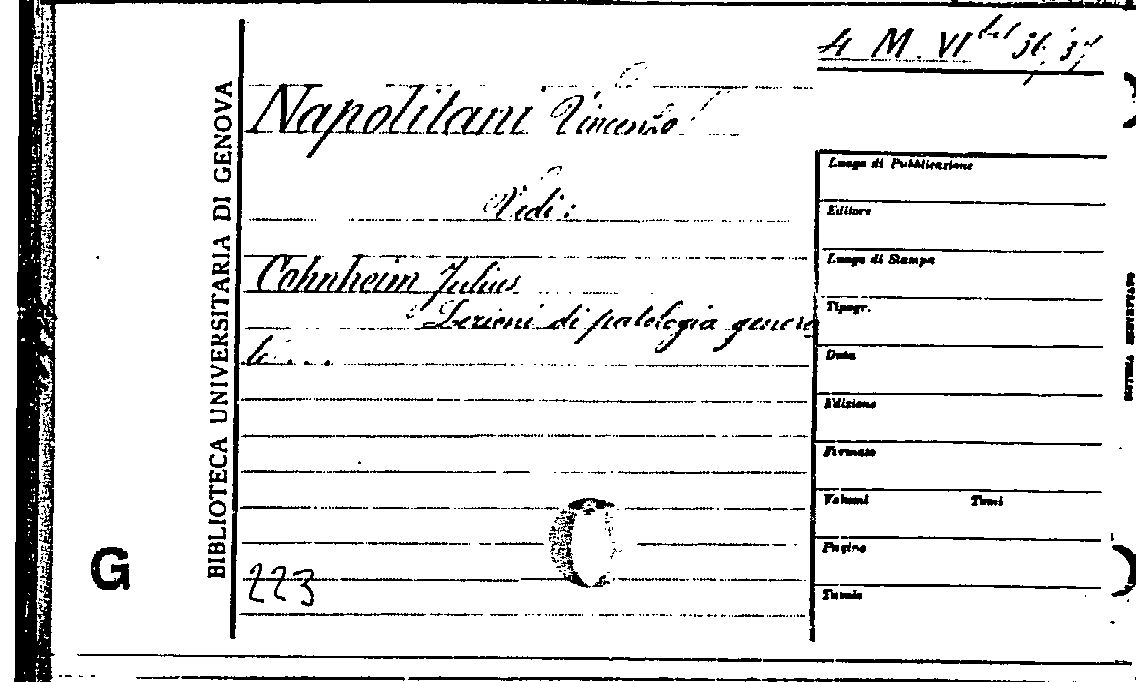 4 M. VI bis 36, 37
Napolitani Vincenzo
Vedi:
Cohnheim Julius
Lezioni di patologia genera
le...
223
BIBLIOTECA UNIVERSITARIA DI GENOVA
G
Luogo di Pubblicazione
Editore
Luogo di Stampa
Tipogr.
Data
Edizione
Formato
Volumi Tomi
Pagine
Tavole